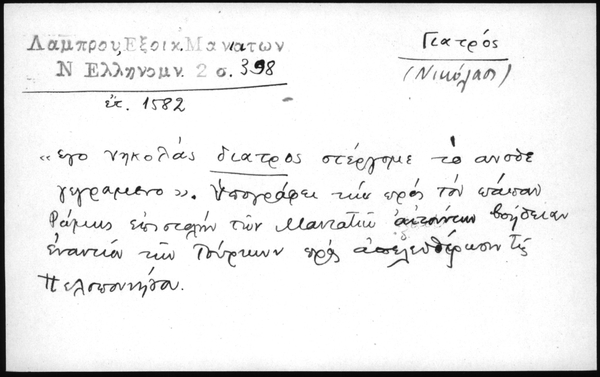 Λάμπρου, Εξοικ. Μανιατων
Ν Ελληνομν. 2 σ. 398
ἐτ. 1582
Γιατρός
(Νικόλαος)
«εγο νηκολάς διατρος στέργομε το ανοθε
γεγραμενο». Ὑπογράφει τὴν πρὸς τὸν πάπαν
Ρώμης ἐπιστολὴν τῶν Μανιατῶν αἰτούντων βοήθειαν
ἐναντίον τῶν Τούρκων πρὸς ἀπελευθέρωσιν τῆς
Πελοποννήσου.